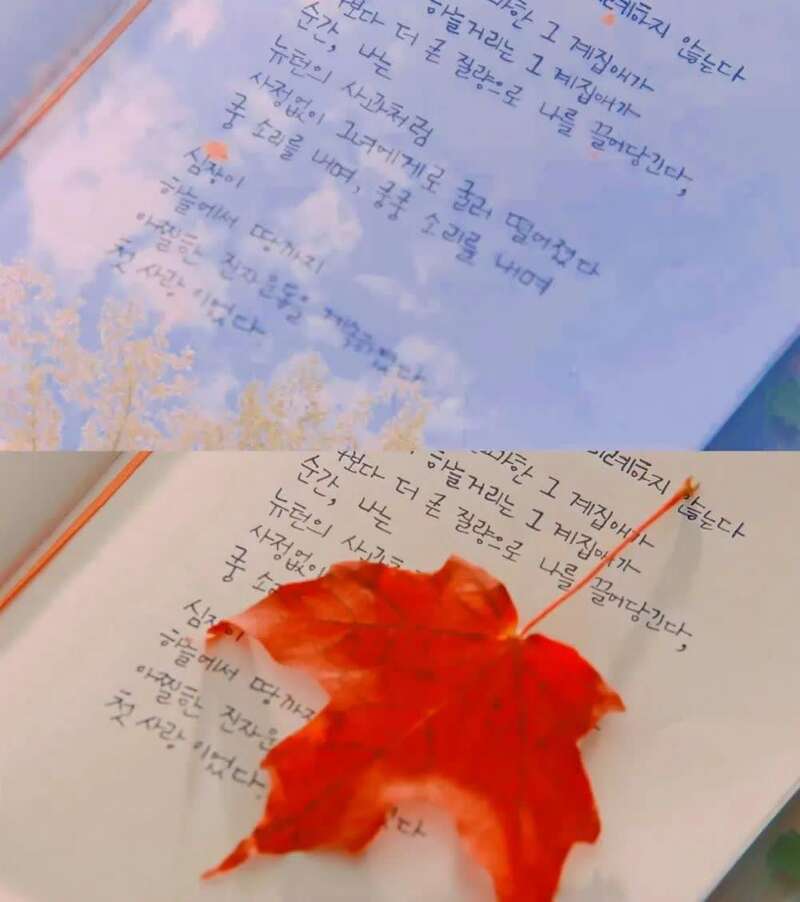 례하지 않는다
마한 그 계집애가
하늘거리는 그 계집애가
보다 더 큰 질량으로 나를 끌어당긴다,
순간, 나는
뉴턴의 사과처럼
사정없이 그녀에게로 굴러 떨어졌다
쿵 소리를 내며, 쿵쿵 소리를 내며
심장이
하늘에서 땅까지
아찔한 진자운동을 계속하였다
첫사랑이었다.
례하지 않는다
마한 그 계집애가
하늘거리는 그 계집애가
보다 더 큰 질량으로 나를 끌어당긴다,
순간, 나는
뉴턴의 사과
사정없이
쿵 소
심장이
하늘에서 땅까지
아찔한 진자운
첫사랑이었다.